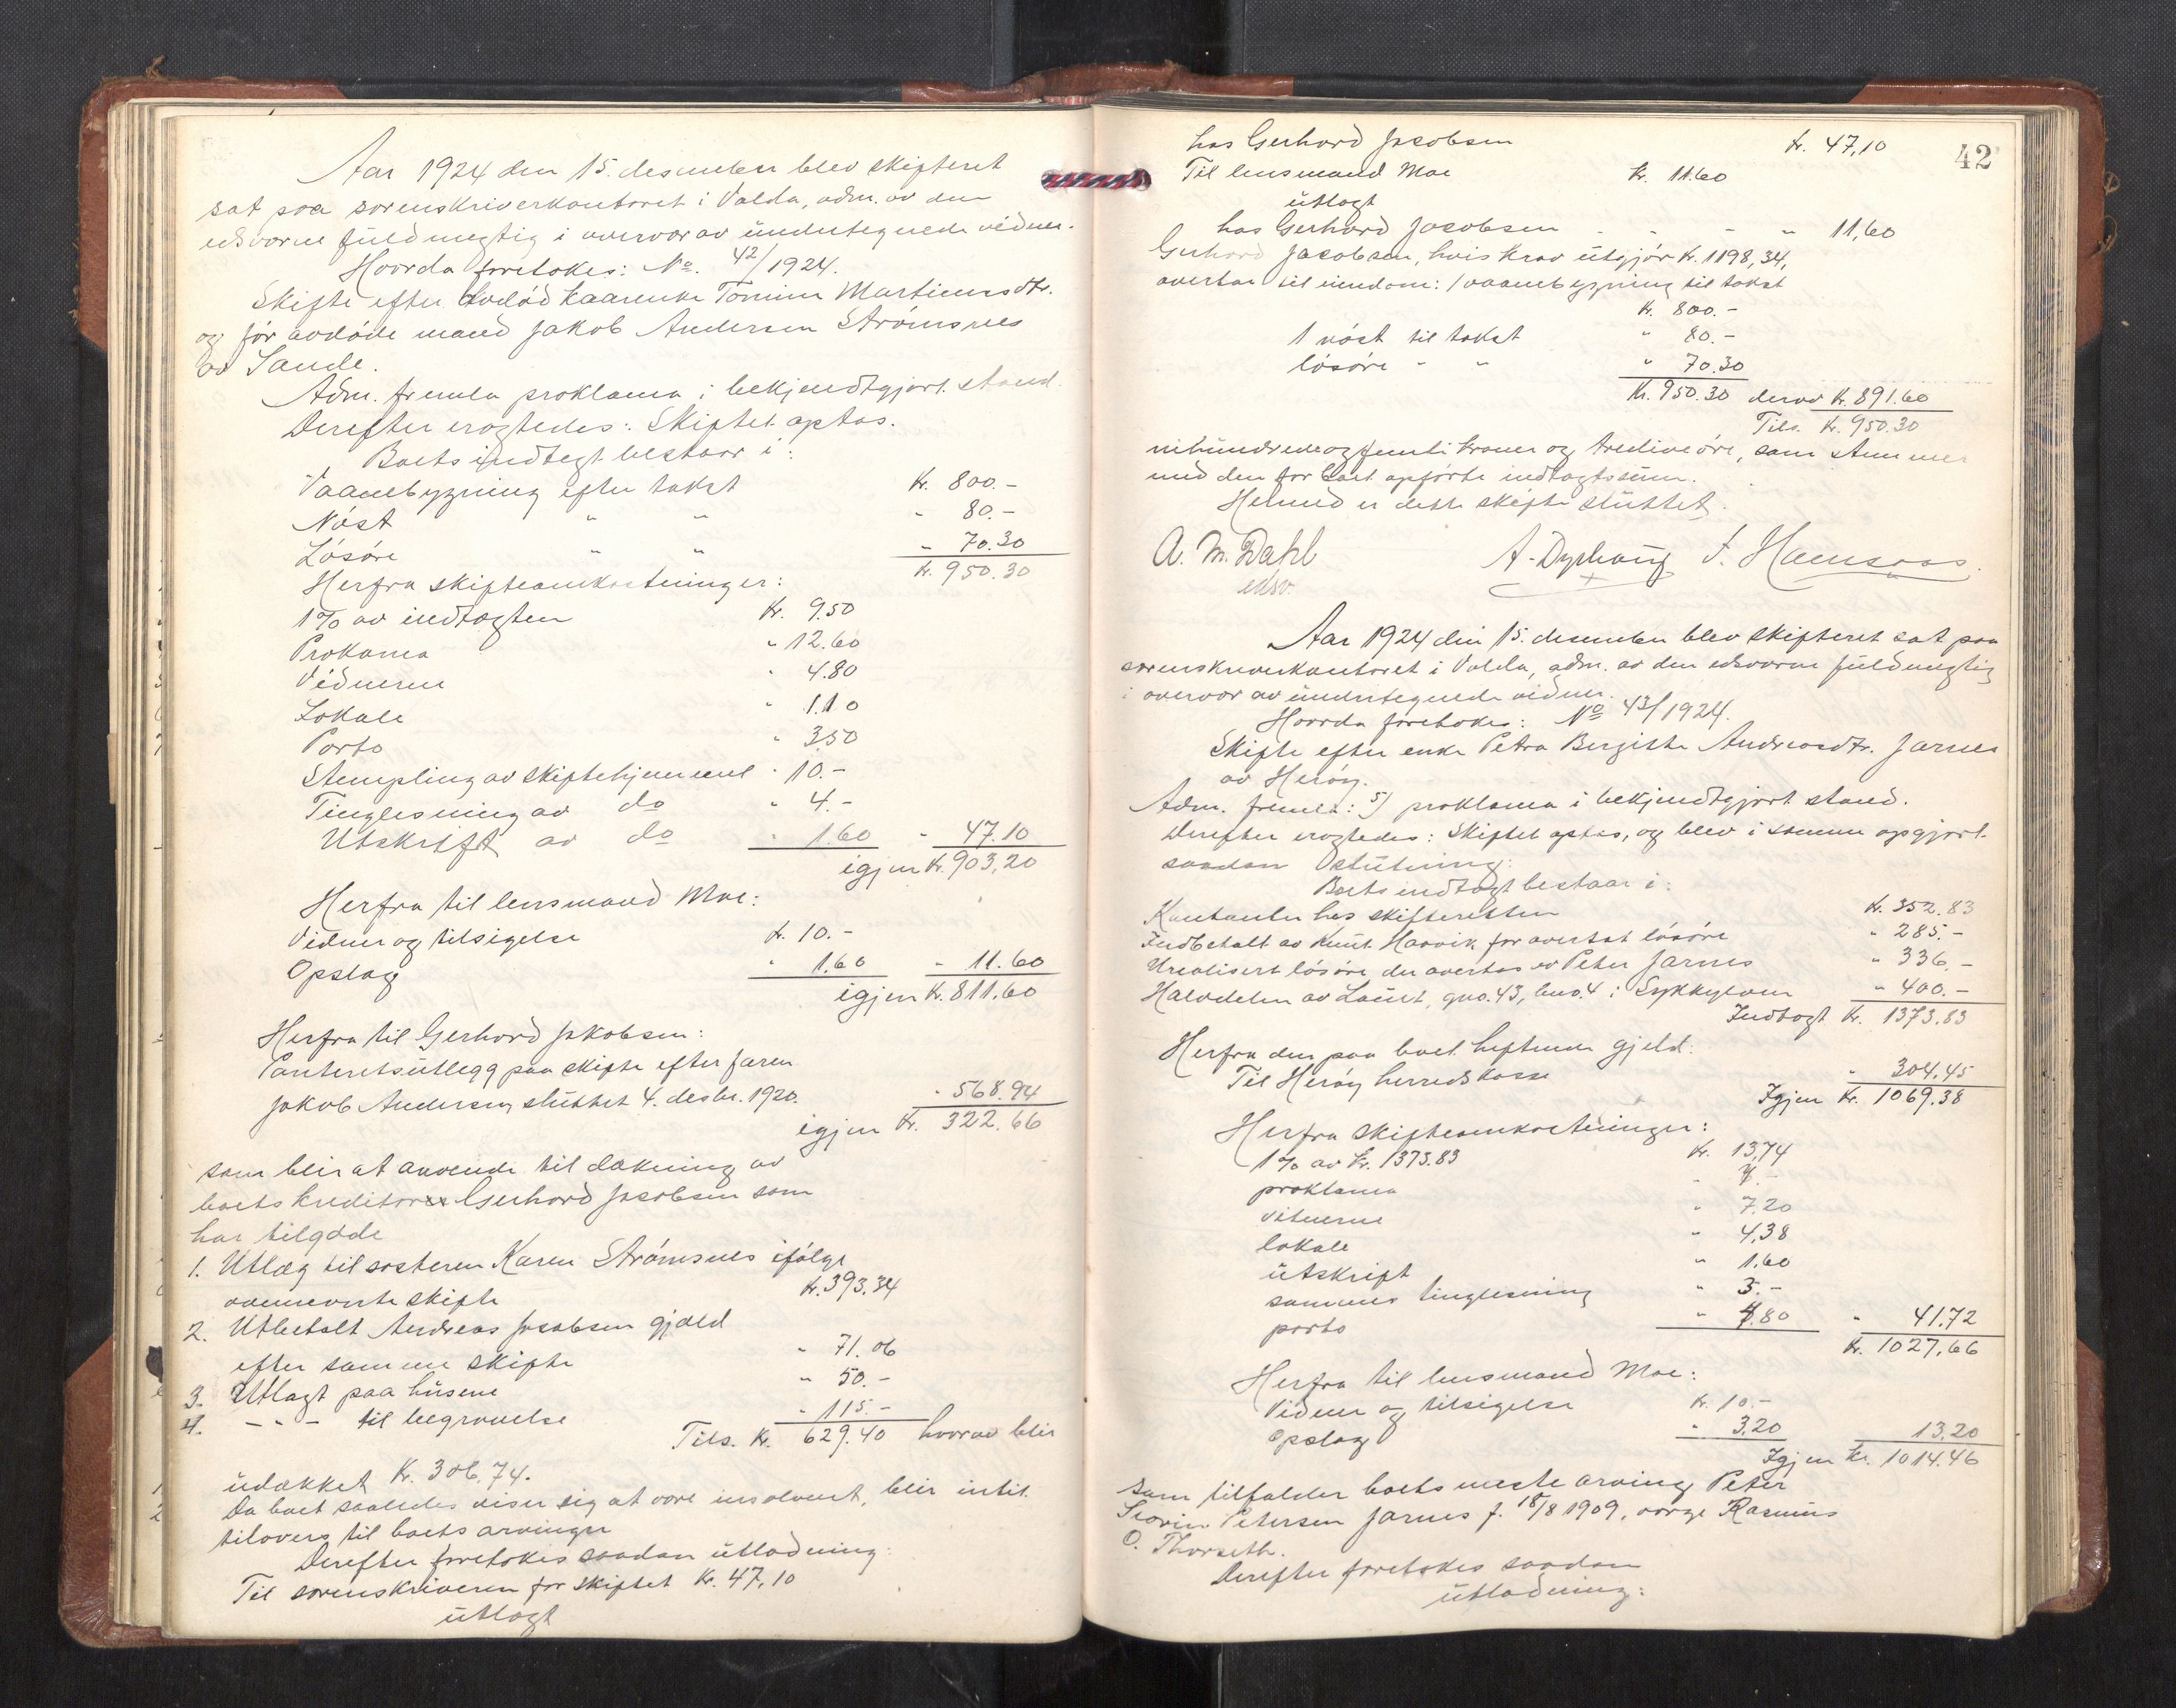 Aar 1924 den 15. desember blev skifteret
sat paa sorenskriverkontoret i Volda, adm. av den
edsvorne fuldmegtig i overvær av undertegnede vidner.
Hvorda foretokes: No. 42/1924.
Skifte efter avdød kaarenke Martinusdtr.
og før avdøde mand Jakob Andersen Strømsnes
av Sande.
Adm. fremla proklama i bekjendtgjort stand.
Derefter eragtedes: Skiftet optas.
Boets indtegt bestaar i:
Vaanebygning efter takst Kr. 800.-
Nøst " " " 80.-
Løsøre " " " 70.30
Kr. 950.30
Herfra skifteomkostninger:
1% av indtægten Kr. 9.50
Prokama " 12.60
Vidnerne " 4.80
Lokale " 1.10
Porto " 3.50
Stempling av skiftehjemmel " 10.-
Tinglesning av do " 4.-
Utskrift av do " 1.60 " 47.10
igjen Kr. 903,20
Herfra til lensmand Moe:
Vidner og tilsigelse Kr. 10.-
Opslag " 1.60 " 11.60
igjen Kr. 811.60
Herfra til Gerhard Jakobsen:
Panteretsutlegg paa skifte efter faren
Jakob Andersen sluttet 4. desbr. 1920. " 568.94
igjen Kr. 322.66
som blir at anvende til dækning av
boets kreditor Gerhard Jacobsen som
har tilgode
1. Utlæg til søsteren Karen Strømsnes ifølge
ovennevnte skifte Kr. 393.34
2. Utbetalt Andreas Jacobsen gjæld
efter samme skifte " 71.06
3. Utlagt paa husene " 50.-
4. - " - til begravelse " 115.-
Tils. Kr. 629.40 hvorav blir
udækket Kr. 306.74.
Da boet saaledes viser sig at være insolvent, blir intet
tilovers til boets arvinger
Derefter foretokes saadan utlodning:
Til sorenskriveren for skiftet Kr. 47,10
utlagt
42
hos Gerhard Jacobsen Kr. 47,10
Til lensmand Moe Kr. 11.60
utlagt
hos Gerhard Jacobsen - - - " 11,60
Gerhard Jacobsen, hvis krav utgjør Kr. 1198,34,
overtar til eiendom: 1 vaanebygning til takst
Kr. 800.-
1 nøst til takst " 80.-
løsøre " " " 70.30
Kr. 950.30 derav Kr. 891.60
Tils. Kr. 950.30
nihundredeogfemti kroner og tredive øre, som stemmer
med den for boet opførte indtægtssum.
Hermed er dette skifte sluttet.
A. M. Dahl
edsv.
A. Dyrhaug
Aar 1924 den 15. desember blev skifteret sat paa
sorenskriverkontoret i Volda, adm. av den edsvorne fuldmegtig
i overvær av undertegnede vidner.
Hvorda foretokes: No 43/1924.
Skifte efter enke Petra Bergithe Andreasdtr. Jarnes
av Herøy.
Adm. fremla: 5) proklama i bekjendtgjort stand.
Derefter eragtedes: Skiftet optas, og blev i samme opgjort
saadan slutning:
Boets indtægt bestaar i:
Kontanter hos skifteretten Kr. 352.83
Indbetalt av Knut Haavik for overtat løsøre " 285.-
Urealisert løsøre der overtas av Peter Jarnes " 336.-
Halvdelen av gno. 43, bno. 4 i Sykkylven " 400.-
Indtægt Kr. 1373.83
Herfra den paa boet heftende gjeld:
Til Herøy herredskasse " 304.45
Igjen Kr. 1069.38
Herfra skifteomkostninger:
1% av Kr. 1373.83 Kr. 13,74
proklama " 7.-
vitnerne " 7.20
lokale " 4,38
utskrift " 1.60
sammes tinglesning " 3.-
porto " 4.80 " 41.72
Kr. 1027,66
Herfra til lensmand Moe:
Vidner og tilsigelse Kr. 10.-
Opslag " 3.20 13.20
Igjen Kr. 1014.46
som tilfalder boets næste arving Peter
Severin Petersen Jarnes f. 18/8 1909, verge Rasmus
O. Thorseth.
Derefter foretokes saadan
utlodning: